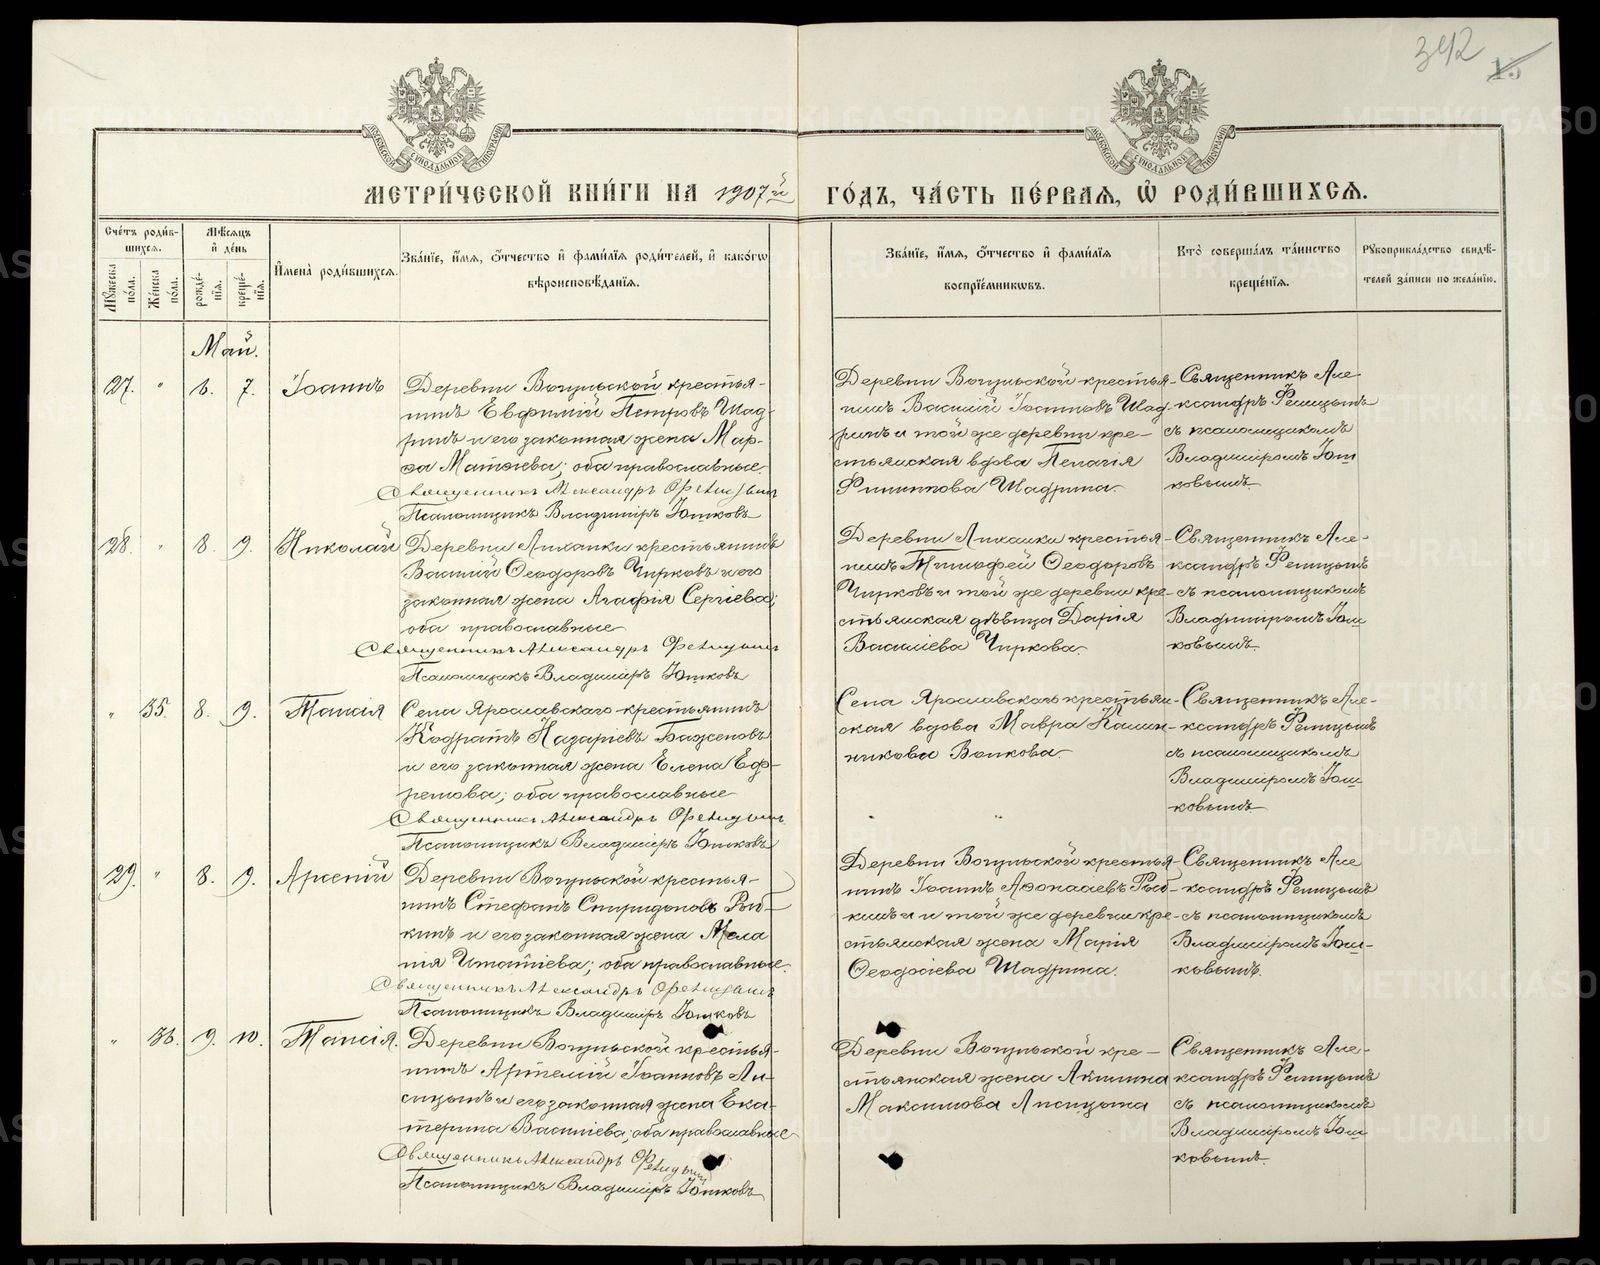 342 15
МОСКОВСКОЙ СУНОДАЛЬНОЙ ТИПОГРАФІИ
МОСКОВСКОЙ СУНОДАЛЬНОЙ ТИПОГРАФІИ
МЕТРИ́ЧЕСКОЙ КНИ́ГИ НА 1907й ГО́ДЪ, ЧА́СТЬ ПЕ́РВАЯ, Ѡ҆ РОДИ́ВШИХСЯ.
Сче́тъ роди́в-
шихся.
Му́жеска по́ла.
Же́нска по́ла.
Мѣ́сяцъ
и҆ де́нь
рожде́-
нїя.
креще́-
нїя.
И҆мена̀ роди́вшихся.
Зва́нїе, и҆́мя, ѻ҆́тчество и҆ фами́лїя роди́телей, и҆ како́гѡ
вѣроисповѣ́данїя.
Зва́нїе, и҆́мя, ѻ҆́тчество и҆ фами́лїя
воспрїе́мникѡвъ.
Кто̀ соверша́лъ та́инство
креще́нїя.
Рꙋкоприкла́дство свидѣ́-
телей за́писи по жела́нїю.
Май.
27. " 6. 7. Іоаннъ
Деревни Вогульской крестья-
нинъ Евфимій Петровъ Шад-
ринъ и его законная жена Мар-
ѳа Матѳіева; оба православные.
Священникъ Александръ Фелицынъ
Псаломщикъ Владиміръ Юшковъ
Деревни Вогульской крестья-
нинъ Василій Іоанновъ Шад-
ринъ и той же деревни кре-
стьянская вдова Пелагія
Филиппова Шадрина.
Священникъ Але-
ксандръ Фелицынъ
съ псаломщикомъ
Владиміромъ Юш-
ковымъ.
28. " 8. 9. Николай
Деревни Лиханки крестьянинъ
Василій Ѳеодоровъ Чирковъ и его
законная жена Агафія Сергіева;
оба православные
Священникъ Александръ Фелицынъ
Псаломщикъ Владиміръ Юшковъ
Деревни Лиханки крестья-
нинъ Тимофей Ѳеодоровъ
Чирковъ и той же деревни кре-
стьянская дѣвица Дарія
Василіева Чиркова.
Священникъ Але-
ксандръ Фелицынъ
съ псаломщикомъ
Владиміромъ Юш-
ковымъ.
" 35. 8. 9. Таисія
Села Ярославскаго крестьянинъ
Кодратъ Назаріевъ Баженовъ
и его законная жена Елена Еф-
ремова; оба православные
Священникъ Александръ Фелицынъ
Псаломщикъ Владиміръ Юшковъ
Села Ярославскаго крестьян-
ская вдова Мавра Калин-
никова Волкова.
Священникъ Але-
ксандръ Фелицынъ
съ псаломщикомъ
Владиміромъ Юш-
ковымъ
29. " 8. 9. Арсеній
Деревни Вогульской крестья-
нинъ Стефанъ Спиридоновъ Рыб-
кинъ и его законная жена Мела
нія Игнатіева; оба православные.
Священникъ Александръ Фелицынъ
Псаломщикъ Владиміръ Юшковъ
Деревни Вогульской крестья-
нинъ Іоаннъ Аѳонасіевъ Рыб-
кинъ и той же деревни кре-
стьянская жена Марія
Ѳеодосіева Шадрина.
Священникъ Але
ксандръ Фелицынъ
съ псаломщикомъ
Владиміромъ Юш-
ковымъ.
" 36. 9. 10. Таисія.
Деревни Вогульской крестья-
нинъ Артемій Іоанновъ Ли-
сицынъ и его законная жена Ека-
терина Василіева; оба православные
Священникъ Александръ Фелицынъ
Псаломщикъ Владиміръ Юшковъ
Деревни Вогульской кре-
стьянская жена Акилина
Максимова Лисицына
Священникъ Але-
ксандръ Фелицынъ
съ псаломщикомъ
Владиміромъ Юш-
ковымъ.
METRIKI.GASO-URAL.RU